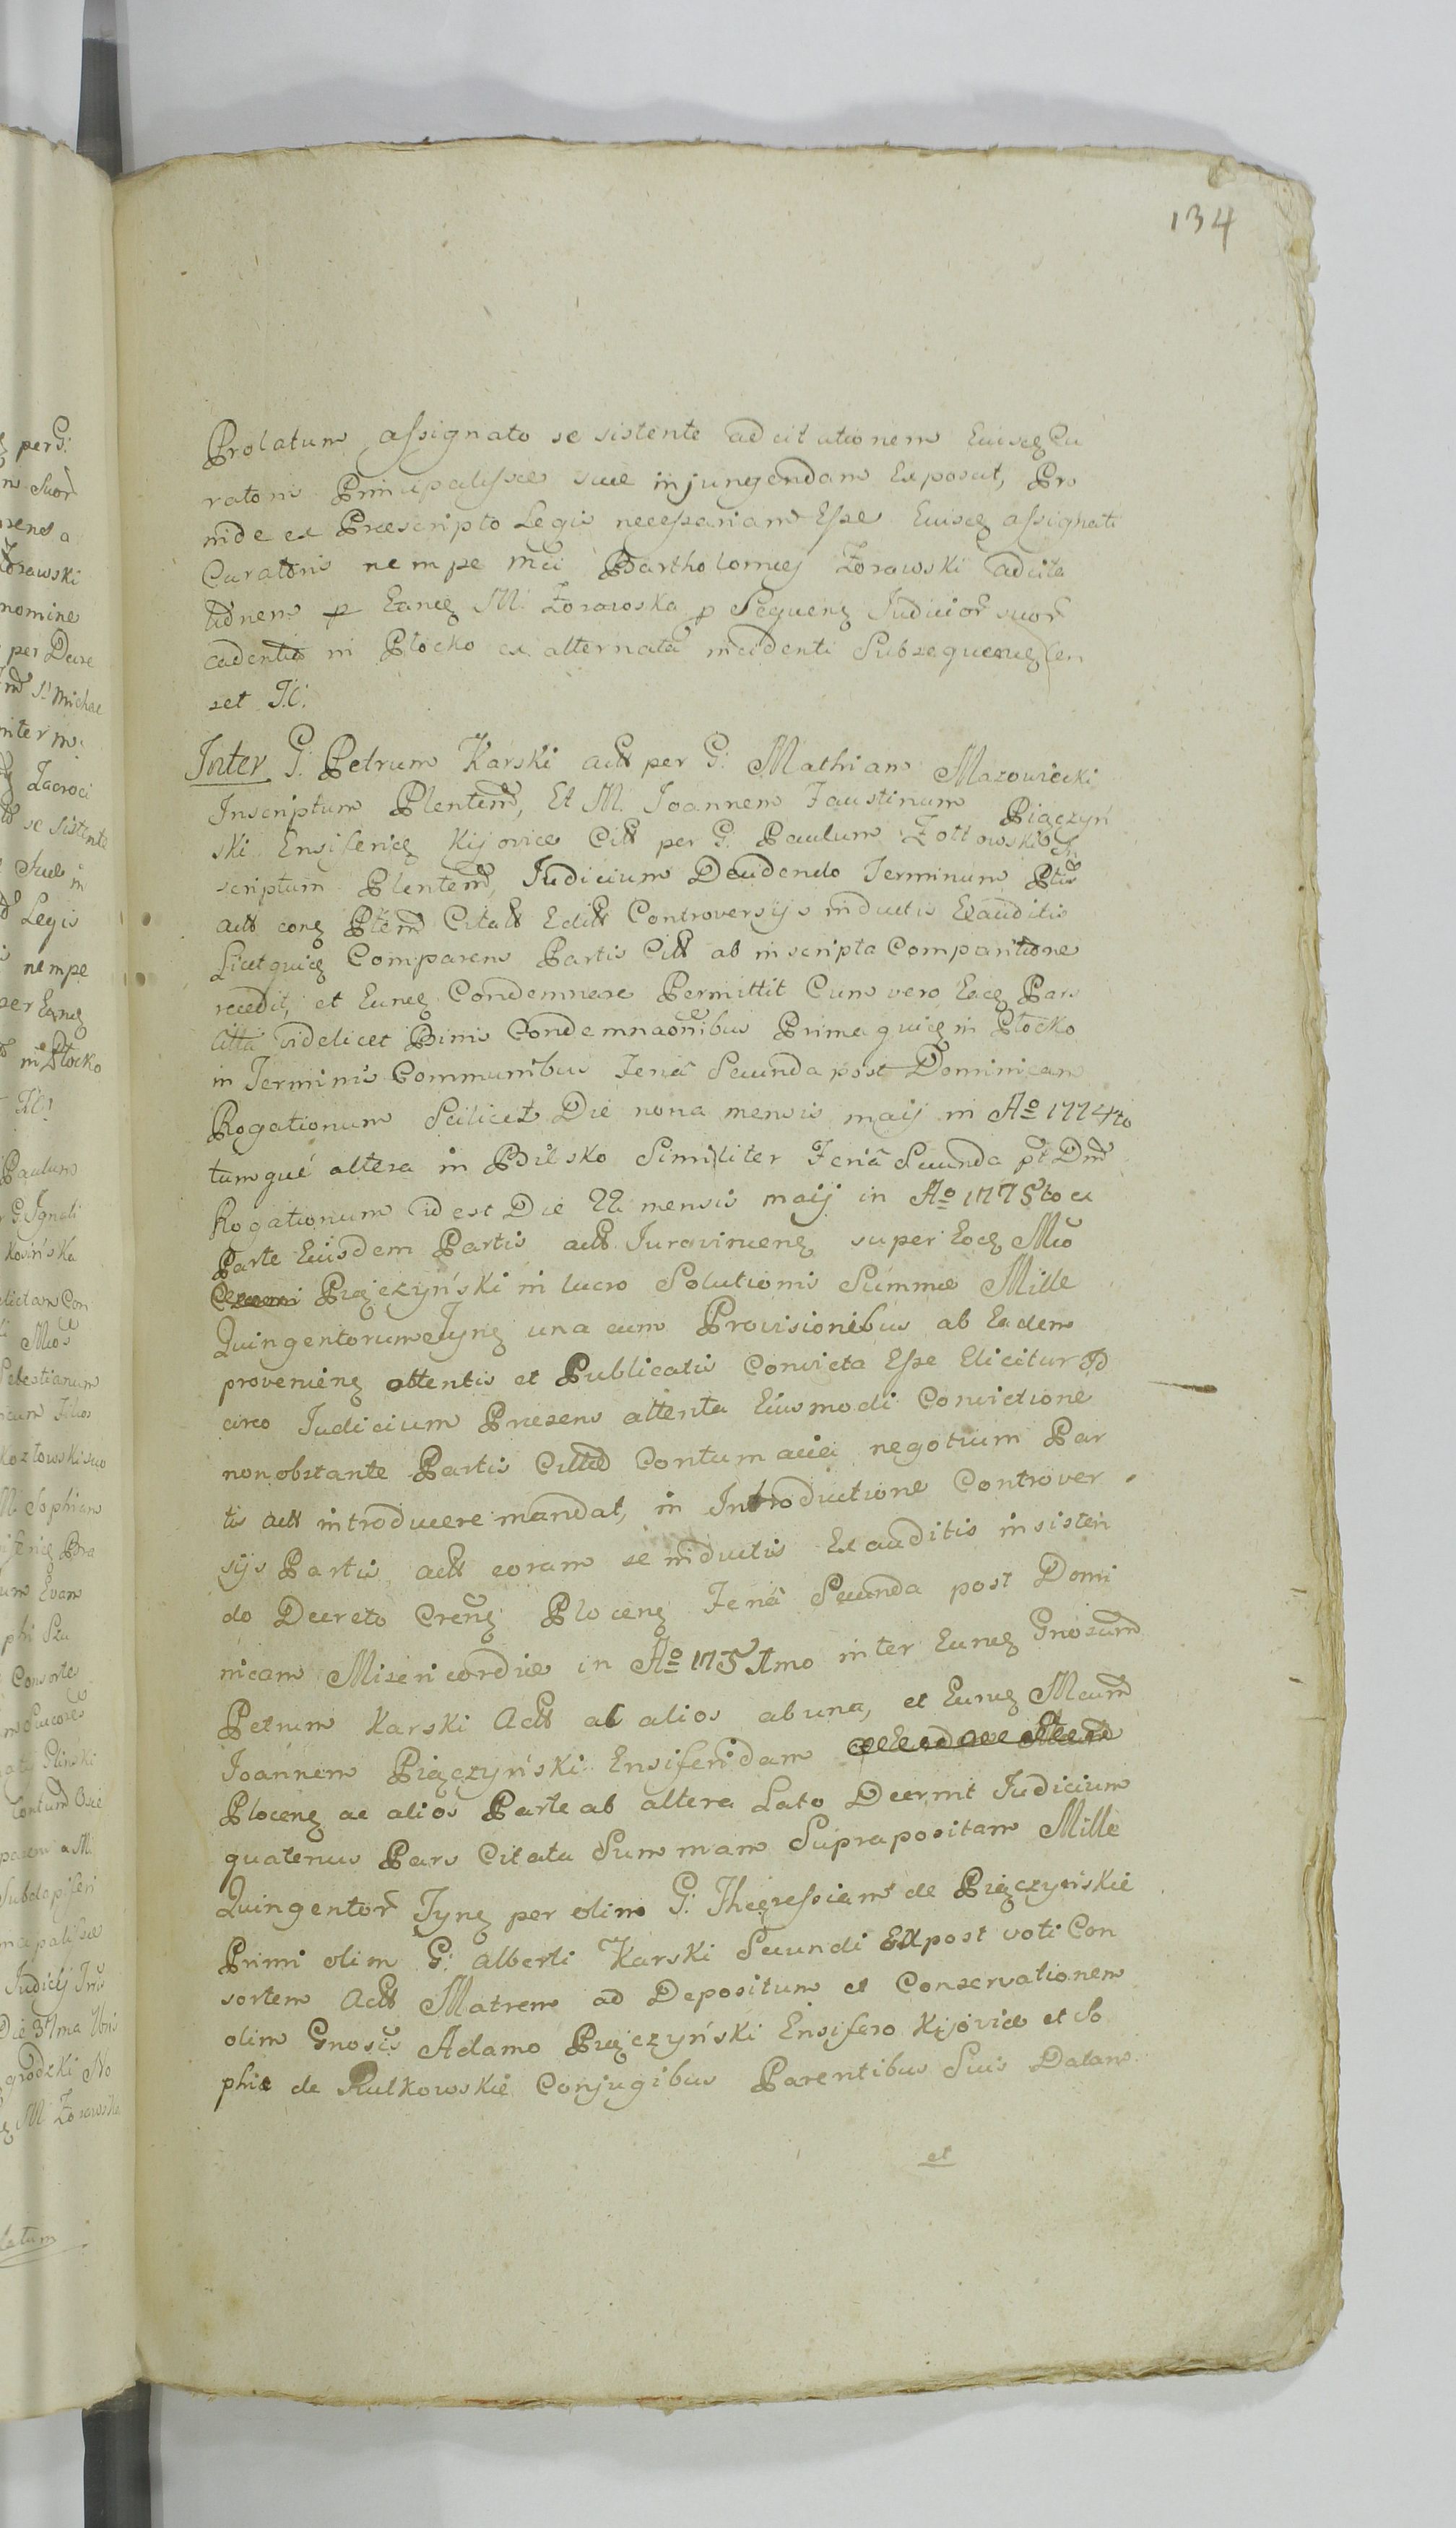 134
Prolatum assignato se sistente adcitationem Eiusq Cu
ratoris Principalissae suae injungendam Exposuit, Pro
inde ex Praescripto Legis necessariam Esse Eiusq assignati
Curatoris nempe Mci Bartholomaej Zorawski adcita
tionem p Eanq M. Zorawska p Sequenq Judicior suor
cadentia in Płocko ex alternata incidenti Subsequenq Cen
set J.C.
Inter G. Petrum Karski Act per G. Mathiam Mazowiecki
Inscriptum Plentem, Et M. Joannem Faustinum Piączyń
ski Ensiferiq Kijoviae Citt per G. Paulum Zołtowski In
scriptum Plentem, Judicium Decidendo Terminum Ptis
act conq Ptem Citatt Editt Controversijs inductis Exauditis
Licet quiq Comparens Partis Citt ab inscripta Comparitione
recedit, et Eunq Condemnare Permittit Cum vero Eaq Pars
Citta videlicet Binis Condemnaonibus Prima quiq in Płocko
in Terminis Communibus Feria Secunda post Dominicam
Rogationum Scilicet Die nona mensis maij in Ao 1774to
tumque altera in Bilsko Similiter Feria Secunda pt Dm
Rogationum id est Die 22 mensis maij in Ao 1775to ex
Parte Eiusdem Partis act Juravinenq super Eoq Mco
Piączyński in lucro Solutionis Summae Mille
Quingentorum Tynq una cum Provisionibus ab Eadem
provenienq obtentis et Publicatis Convicta Esse Elicitur Id
circo Judicium Praesens attenta Eiusmodi Convictione
non obstante Partis Cittae Contumacia negotium Par
tis act introducere mandat, in Introductione Controver
sijs Partis act coram se inductis Exauditis insisten
do Decreto Crenq Plocenq Feria Secunda post Domi
nicam Misericordiae in Ao 1751mo inter Eunq Gnosum
Petrum Karski Act ab alios ab una, et Eunq Mcum
Joannem Piączyński Ensiferidam
Plocenq ac alios Parte ab altera Lato Decernit Judicium
quatenus Pars Citata Summam Suprapositam Mille
Quingentor Tynq per olim G. Theressiam de Piączyńskie
Primi olim G. Alberti Karski Secundi Expost voti Con
sortem Act Matrem ad Depositum et Conservationem
olim Gnosis Adamo Piączyński Ensifero Kijoviae et So
phia de Rutkowskie Conjugibus Parentibus Suis Datam
et